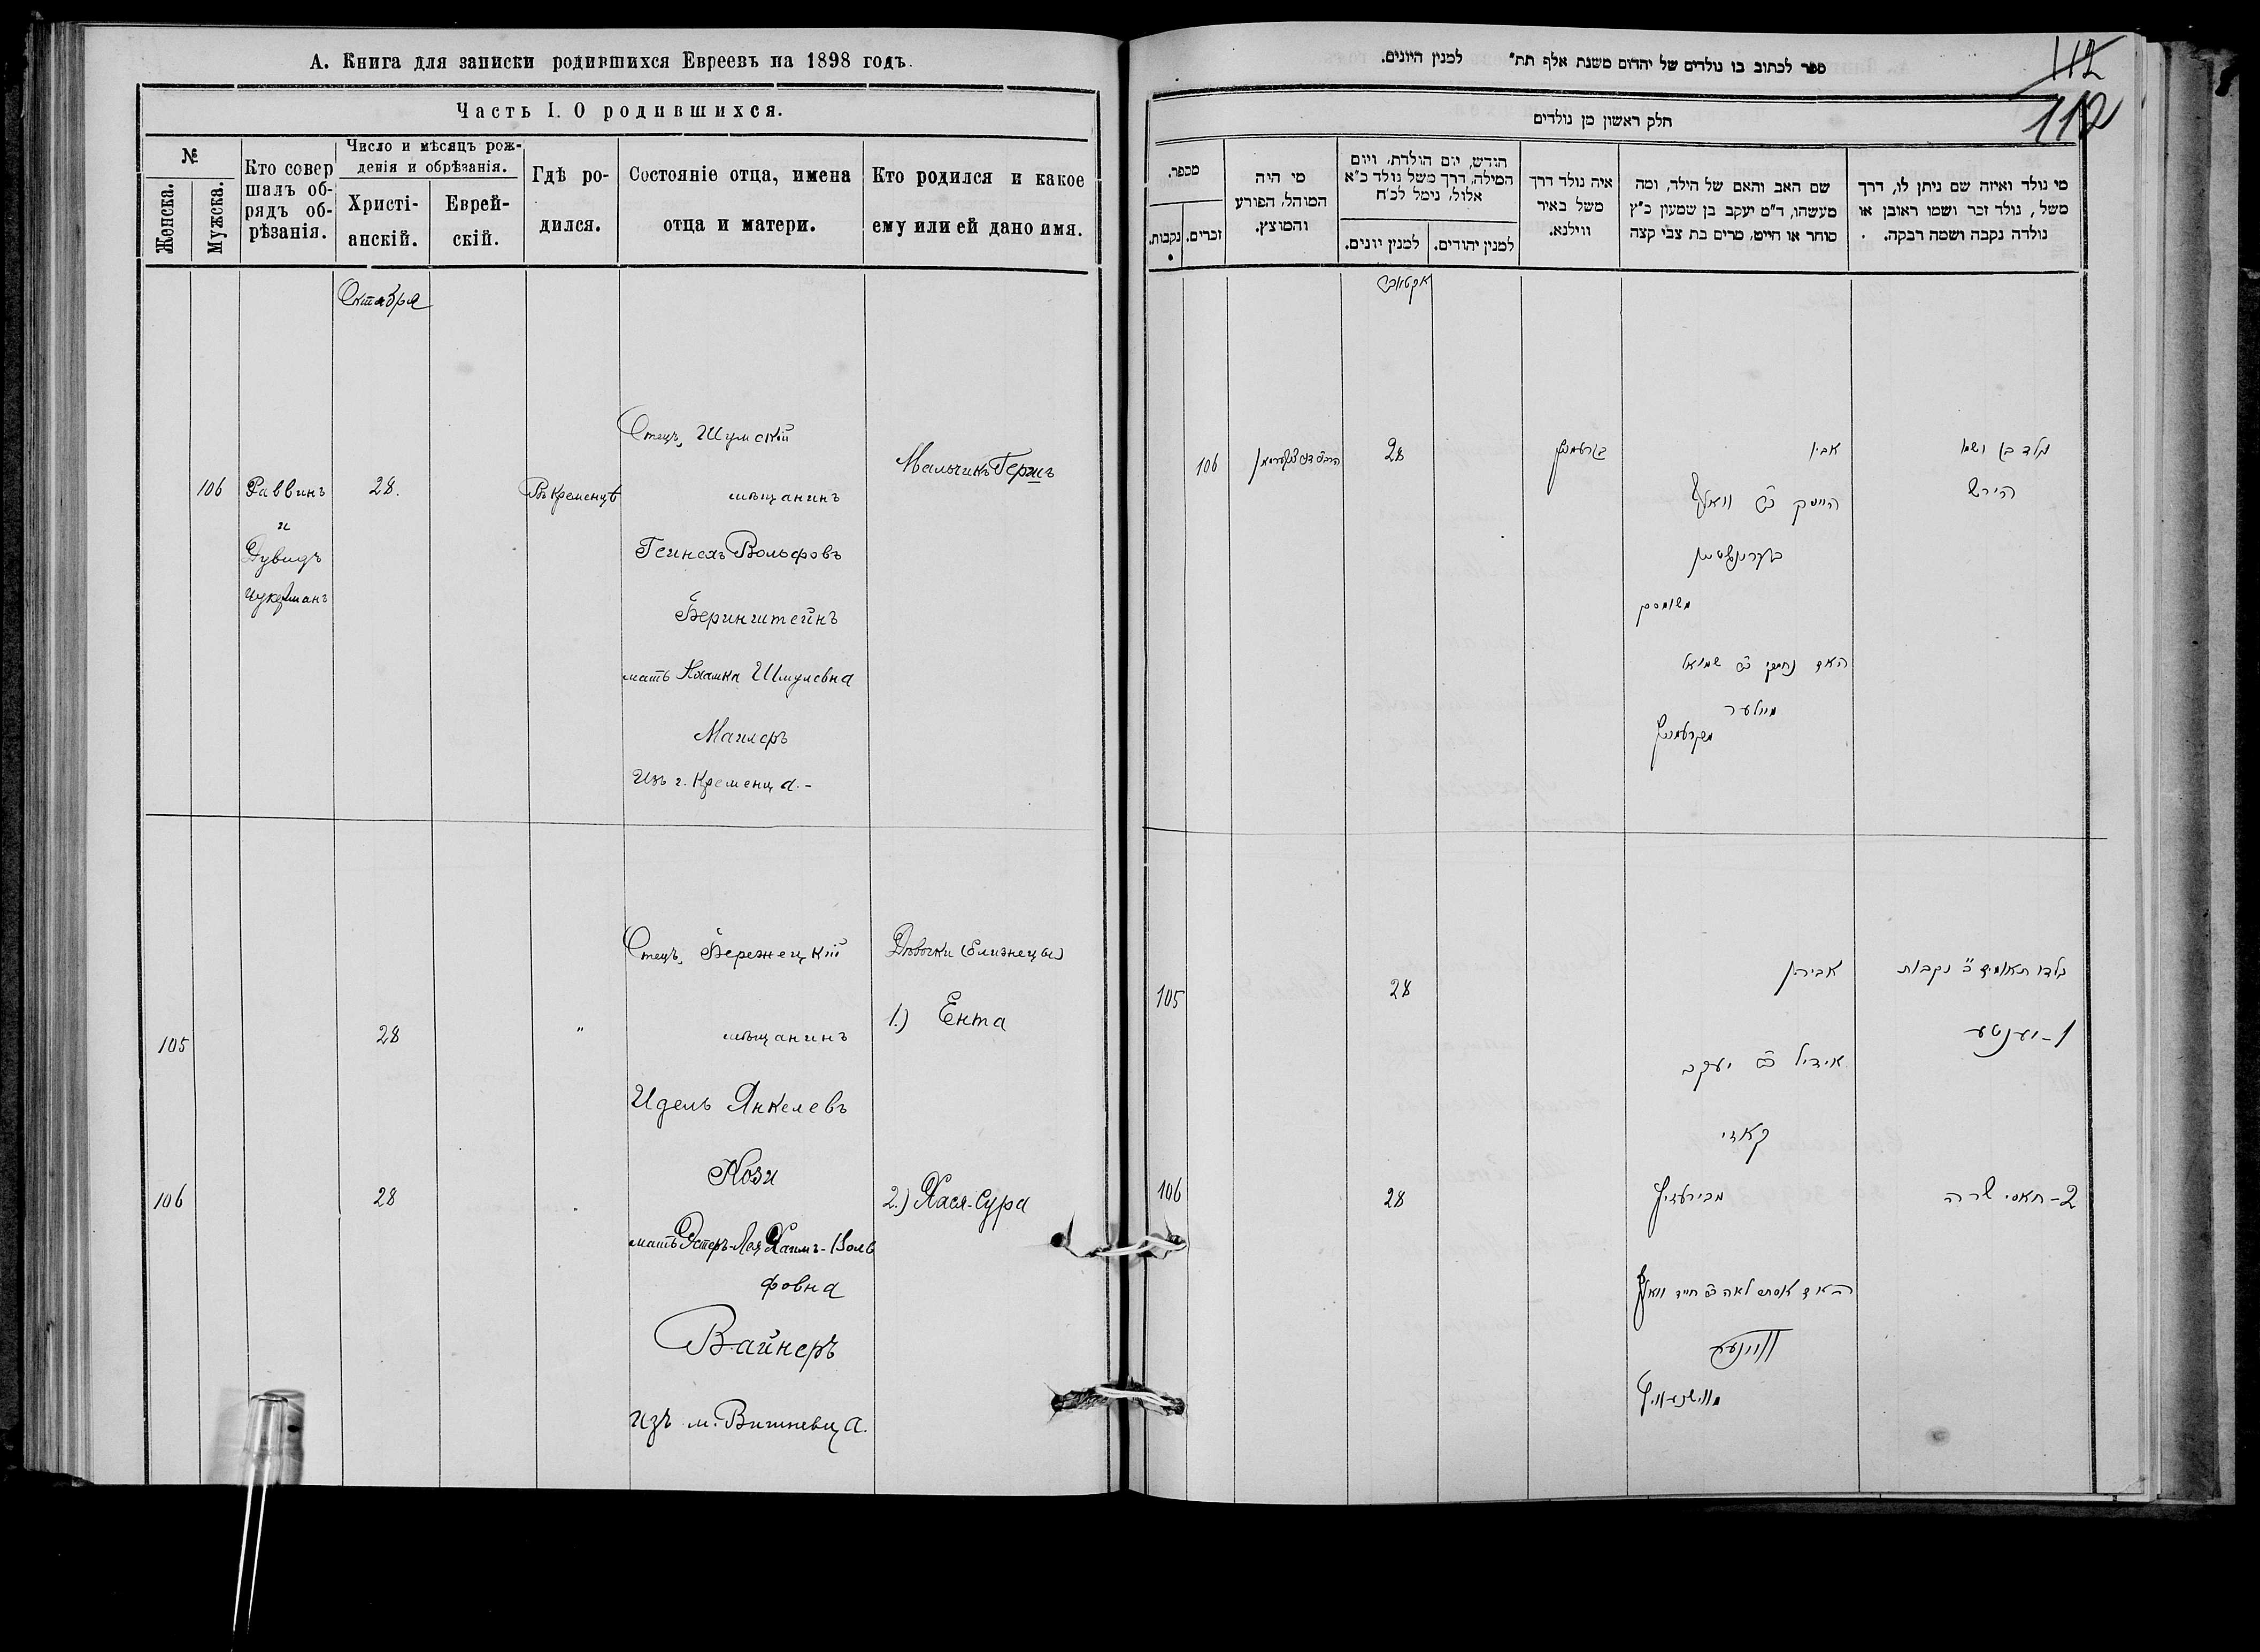 А. Книга для записки родившихся Евреевъ на 1898 годъ.
Часть I. О родившихся.
№
Женска.
Мужска.
Кто совер
шалъ об-
рядъ об-
рѣзанія.
Число и мѣсяцъ рож-
денія и обрѣзанія.
Христі-
анскій.
Еврей-
скій.
Гдѣ ро-
дился.
Состояніе отца, имена
отца и матери.
Кто родился и какое
ему или ей дано имя.
Октября
106
Раввинъ
и
Дувидъ
Цукерманъ
28.
Въ Кременцѣ
Отецъ, Шумскій
мѣщанинъ
Гейнехъ Вольфовъ
Беринштейнъ
мать Шмулевна
Майлеръ
Изъ г. Кременца.-
Мальчикъ Гершъ
105
28
"
Отецъ, Бережецкій
мѣщанинъ
Идель Янкелевъ
Кози
мать Эстеръ-Лея Хаимъ-Воль
фовна
Вайнеръ
Изъ м. Вишневца.
Дѣвочки (близнецы)
1.) Ента
106
28
2.) Хася-Сура
ספר לכתוב בו נולדים של יהדום משנת אלף תת" למנין היונים.
112
112
חלק ראשון מן נולדים
מספר.
נקבות.
זכרים.
מי היה
המוהל, הפורע
והמוצץ.
חודש, יום הולדת, ויום
המילה, דרך משל נולד כ"א
אלול, נימל לכ"ח
למנין יונים.
למנין יהודים.
איה נולד דרך
משל באיר
ווילנא.
שם האב והאם של הילד, ומה
מעשהו, ד"מ יעקב בן שמעון כ"ץ
סוחר או חייט, מרים בת צבי קצה
מי נולד ואיזה שם ניתן לו, דרך
משל, נולד זכר ושמו ראובן או
נולדה נקבה ושמה רבקה.
אקטאבר
106
28
אביו
וואלף
בערינשטיין
משומסק
שמואל
מיילער
מקרעמניץ
נולד בן ושמו
הירש
105
28
אביהן
אידיל יעקב
קאזי
נולדו תאומים נקבות
1 - יענטע
106
28
אסתר לאה חיים וואלף
וויינער
מווישניוויץ
2 - חאסי שרה